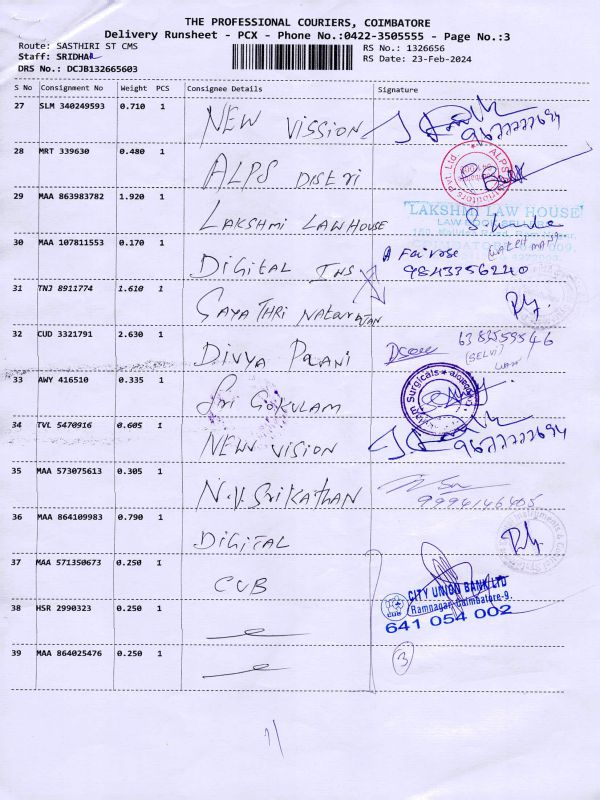 THE PROFESSIONAL COURIERS, COIMBATORE
Delivery Runsheet - PCX - Phone No.:0422-3505555 - Page No.:3
Route: SASTHIRI ST CMS
RS No.: 1326656
Staff: SRIDHAR
RS Date: 23-Feb-2024
DRS No.: DCJB132665603
S No Consignment No Weight PCS Consignee Details Signature
27 SLM 340249593 0.710 1 NEW VISSION
9677777694
28 MRT 339630 0.480 1 ALPS DISTRI
29 MAA 863983782 1.920 1 LAKSHMI LAW HOUSE
LAKSHMI LAW HOUSE
30 MAA 107811553 0.170 1 DIGITAL INS A Fairose
9843356240
31 TNJ 8911774 1.610 1 GAYATHRI NATARAJAN
32 CUD 3321791 2.630 1 DIVYA PALANI 6382559546
(SELVI)
33 AWY 416510 0.335 1 SRI GOKULAM
Surgicals
34 TVL 5470916 0.605 1 NEW VISION
9677777694
35 MAA 573075613 0.305 1 N.V. SRIKATHAN
9994146405
36 MAA 864109983 0.790 1 DIGITAL
37 MAA 571350673 0.250 1 CUB
CITY UNION BANK LTD
Ramnagar-Coimbatore-9.
641 054 002
38 HSR 2990323 0.250 1
39 MAA 864025476 0.250 1
3